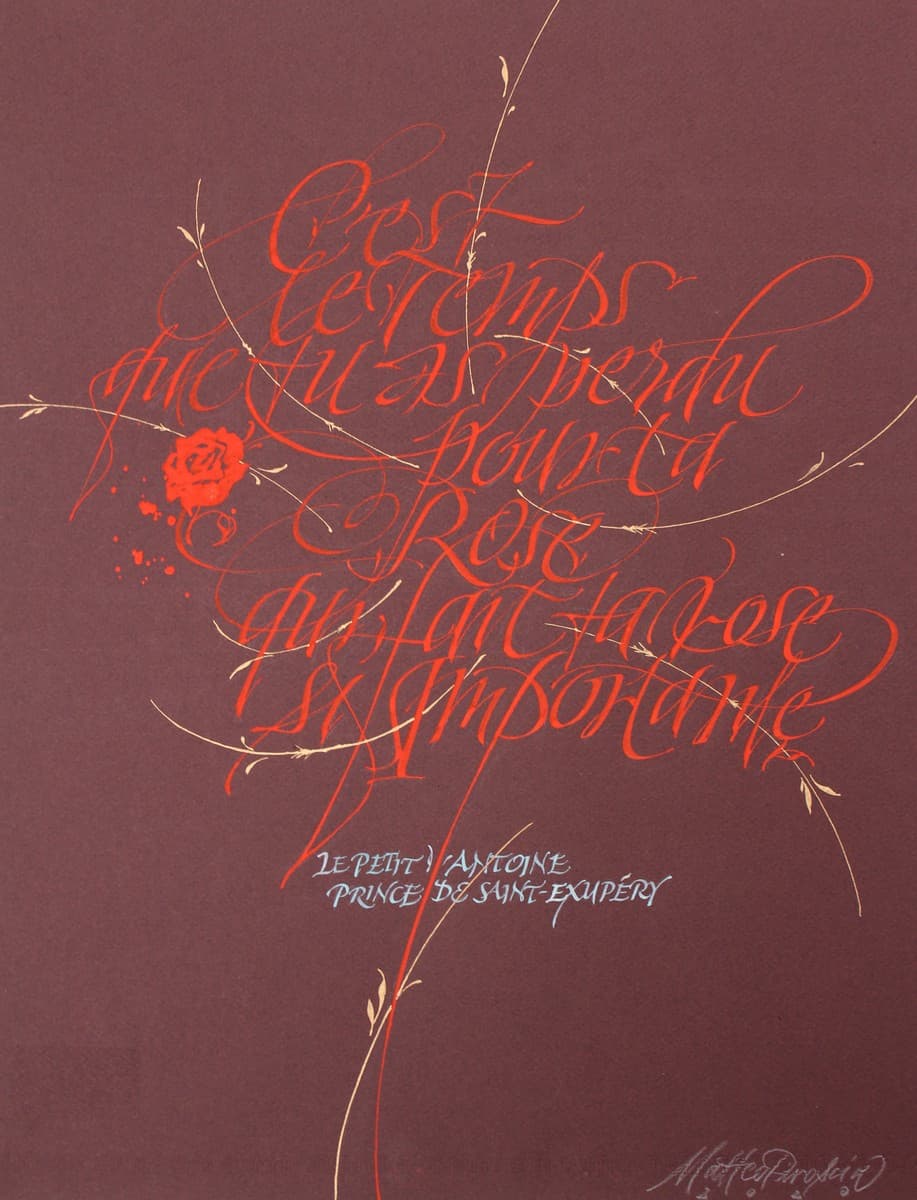 C'est
le Temps
que tu as perdu
pour ta
Rose
qui fait ta rose
si importante
LE PETIT ANTOINE
PRINCE DE SAINT-EXUPÉRY
Matteo